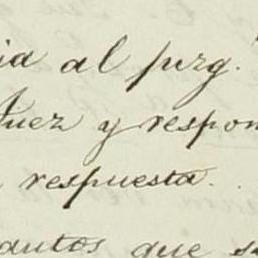 ia al juzg.
Juez y respon
respuesta.
autos que se